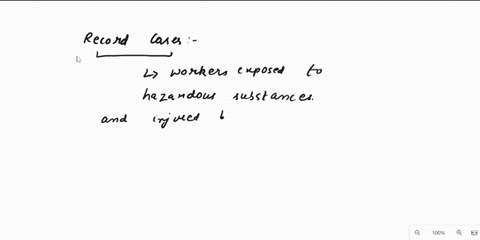 Record Cases:-
↳ workers exposed to
hazandous substances.
and injured
100%